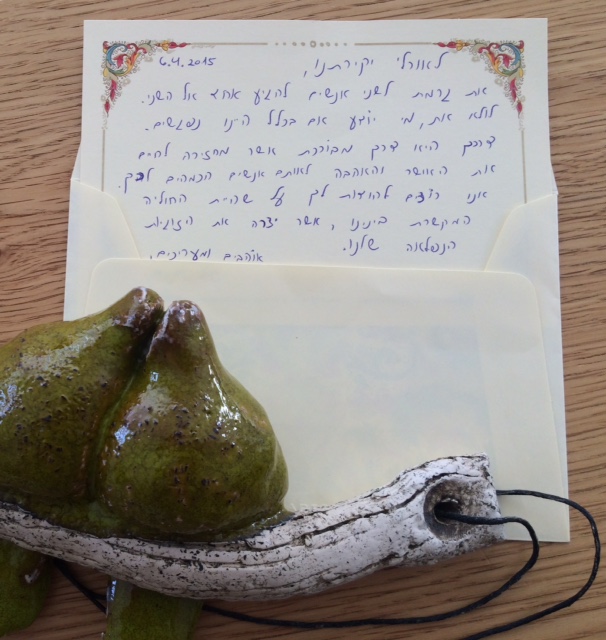 6.4.2015
לאורלי יקירתנו,
את גרמת לשני אנשים להגיע אחד אל השני.
לולא את, מי יודע אם בכלל היינו נפגשים.
דרכך היא דרך מבורכת אשר מחזירה לחיים
את האושר והאהבה לאותם אנשים הכמהים לכך.
אנו רוצים להודות לך על שהיית החוליה
המקשרת בינינו, אשר יצרה את הזוגיות
הנפלאה שלנו.
אוהבים ומעריכים,